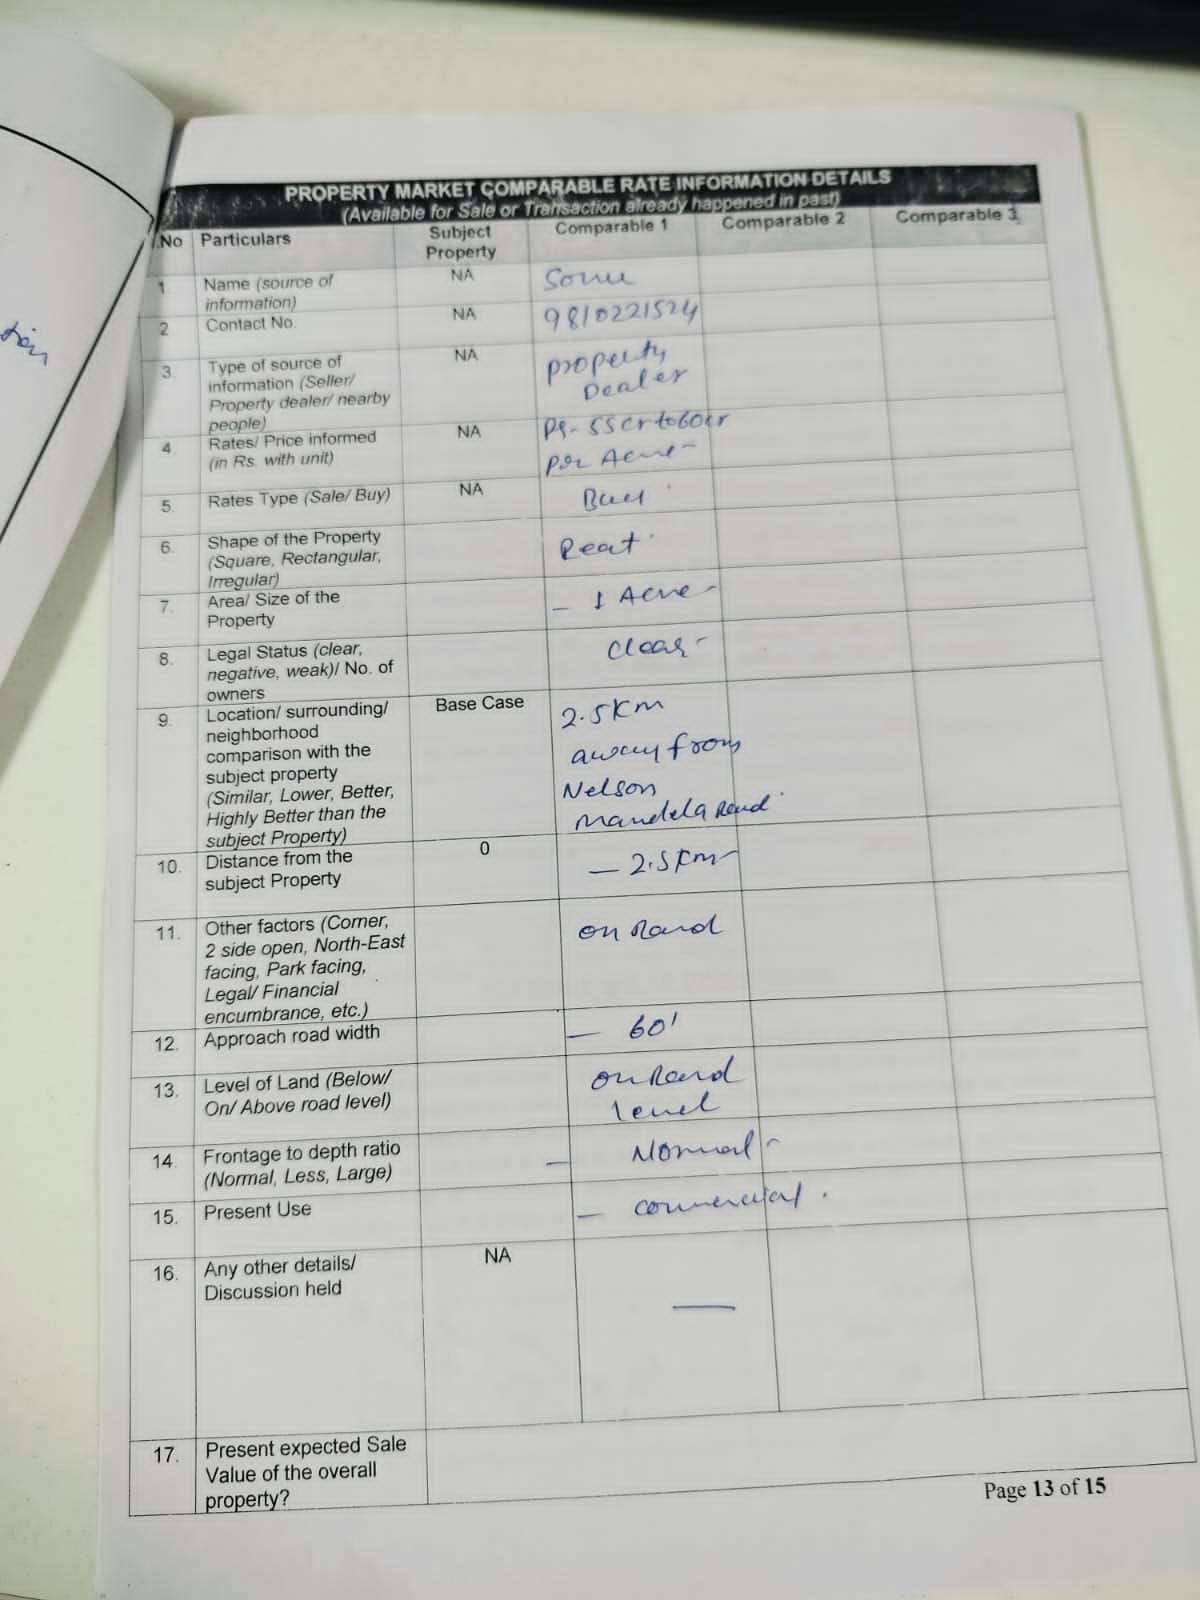 tion
PROPERTY MARKET COMPARABLE RATE INFORMATION DETAILS
(Available for Sale or Transaction already happened in past)
.No Particulars Subject Property Comparable 1 Comparable 2 Comparable 3
1 Name (source of information) NA Sonu
2 Contact No. NA 9810221524
3. Type of source of information (Seller/ Property dealer/ nearby people) NA property Dealer
4 Rates/ Price informed (in Rs. with unit) NA Rs- 55cr to 60cr per Acre
5. Rates Type (Sale/ Buy) NA Buy
6. Shape of the Property (Square, Rectangular, Irregular) Rect
7. Area/ Size of the Property - 1 Acre -
8. Legal Status (clear, negative, weak)/ No. of owners clear -
9. Location/ surrounding/ neighborhood comparison with the subject property (Similar, Lower, Better, Highly Better than the subject Property) Base Case 2.5Km away from Nelson Mandela Road
10. Distance from the subject Property 0 - 2.5Km -
11. Other factors (Corner, 2 side open, North-East facing, Park facing, Legal/ Financial encumbrance, etc.) on Road
12. Approach road width - 60'
13. Level of Land (Below/ On/ Above road level) on Road level
14. Frontage to depth ratio (Normal, Less, Large) - Normal -
15. Present Use - commercial.
16. Any other details/ Discussion held NA —
17. Present expected Sale Value of the overall property?
Page 13 of 15